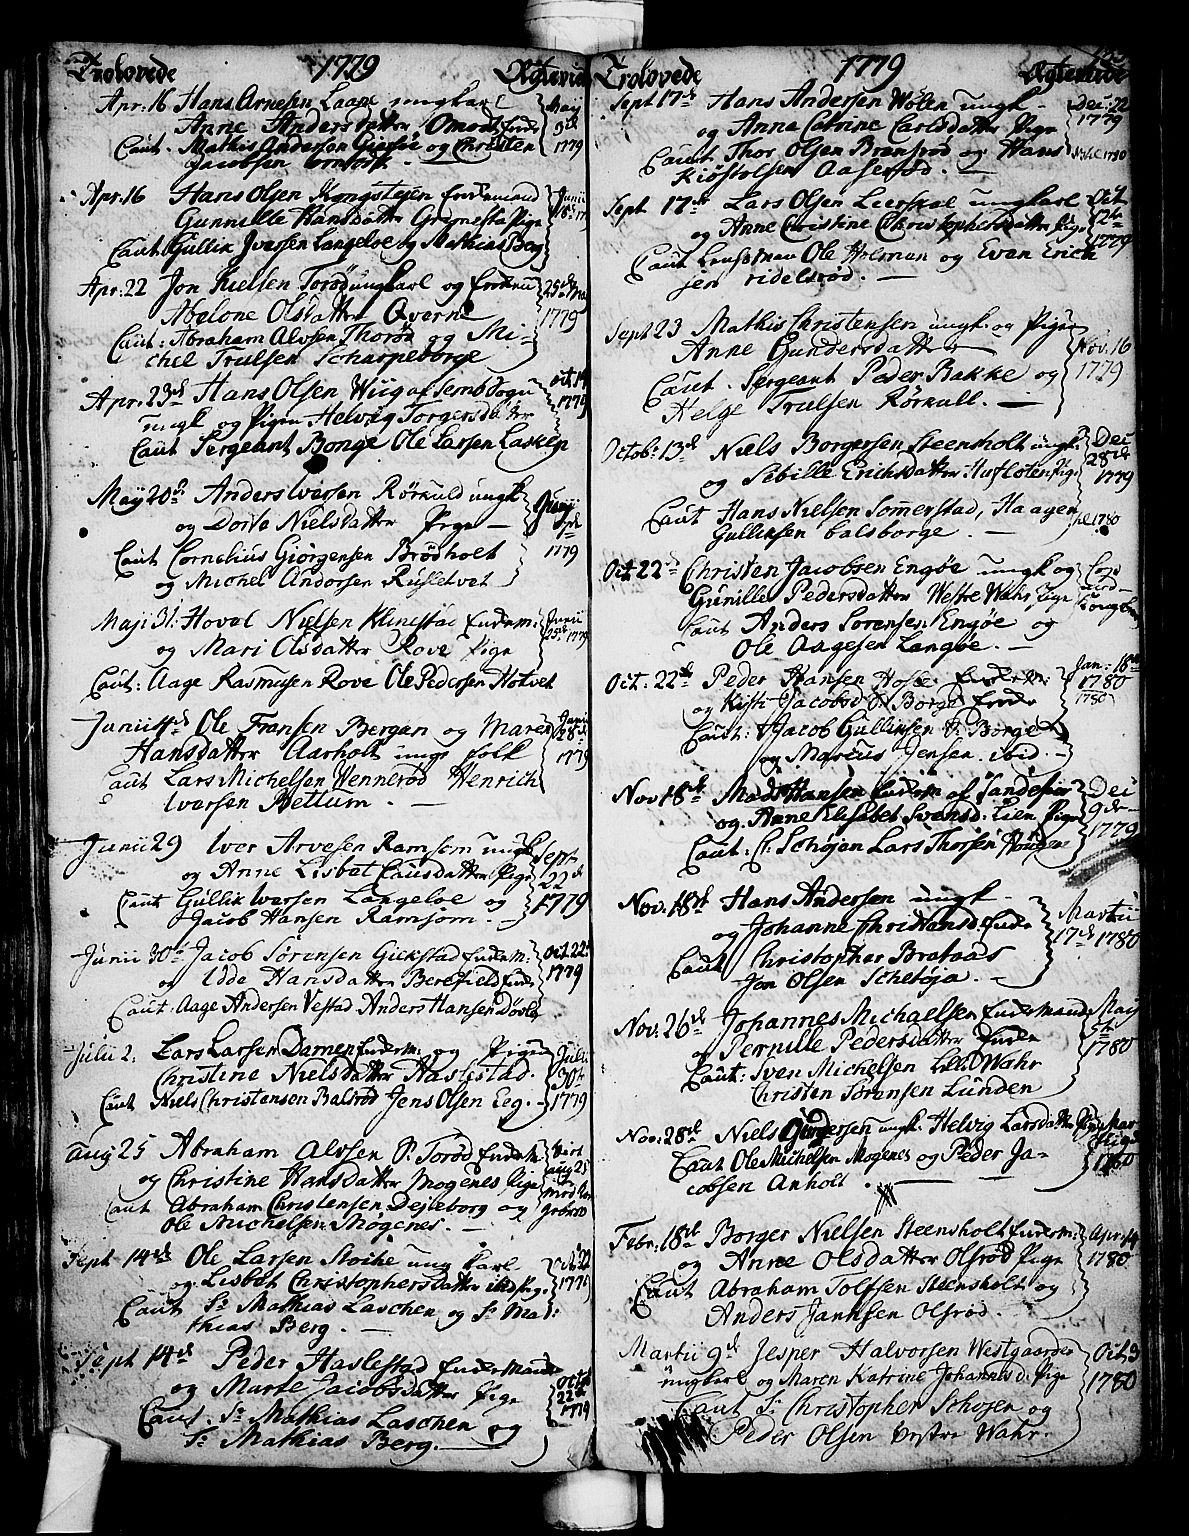 Trolovede 1779 Egteviet
Apr: 16 Hans Arnesen Laane ungkarl Maij
Anne Andersdatter Omodt Enke
Caut. Mathis Andersen og Christen 1779
Jacobsen
Apr: 16 Hans Olsen Kongsteien Enkemand Junii
Gunnille Hansdatter Grimestad Pige 18de 17
Caut: Gullik Iversen Langeloe og Mathias Berg
Apr: 22 Jon Nielsen Torød ungkarl og Enken 25de Ma
Abelone Olsdatter Qverne 1779
Caut: Abraham Alvsen Thorød og Mi-
chel Trulsen Scharpeborge
Apr: 23de Hans Olsen Wiig af Semb Sogn Oct: 14
ungk og Pigen Helvig Torgersdatter 1779
Caut Sergeant Bonge Ole Larsen Lasken
Maij 20de Anders Iversen Rørkuld ungk
og Dorte Nielsdatter Pige —
Caut Cornelius Giørgensen Brødholt 1779
og Michel Andersen Rusletvet
Maji 31: Hovel Nielsen Klinestad Enkem: Junii
og Mari Olsdatter Rove Pige 25de 1779
Caut: Aage Rasmusen Rove Ole Pedersen Holtvet
Junii 4de Ole Fransen Bergan og Maren Junii
Hansdatter Aarholt unge folk 28de
Caut Lars Michelsen Wennerød Henrich 1779
Iversen Bettum. —
Junii 29 Iver Arvesen Ramsom ungk Sept
og Anne Lisbet Clausdatter Pige 22de
Caut Gullik Iversen Langeloe og 1779
Jacob Hansen Ramsom. —
Junii 30te Jacob Sørensen Gickstad Enkem: Oct: 22
og Idde Hansdatter Berefield Enke 1779
Caut: Aage Andersen Vestad Anders Hansen Døvle
Julii 2: Lars Larsen Damen Enkem: og Pigen Julii
Christine Nielsdatter Haslestad. 30te
Caut Niels Christensen Basrød Jens Olsen Eeg. — 1779
Aug 25 Abraham Alvsen P. Torød Enkem:
og Christine Hansdatter Mogenes Pige Aug 25
Caut Abraham Christensen Dejleborg og
Ole Michelsen Mogenes. —
Sept 14de Ole Larsen Stoike ung karl Oct: 22
og Lisbet Christophersdatter 1779
Caut Sr Mathias Laschen og Sr Mat:
thias Berg. —
Sept 14de Peder Haslestad Enkemand Octob
og Marte Jacobsdatter Pige 22de
Caut. Sr Mathias Laschen og 1779
Sr Mathias Berg.
Trolovede 1779 Egteviede
Sept 17de Hans Andersen Wølen ungk — Dec: 22
og Anne Catrine Carlsdatter Pige 1779
Caut Thor Olsen Bransrød og Hans
Kiøstolsen Aaserød. —
Sept 17de Lars Olsen Leerskal ungkarl Oct
og Anne Christine Christophersdatter Pige
Caut Lensmand Ole Holman og Evan Erich 1779
sen ridelsrød. —
Sept 23 Mathis Christensen ungk. og Pigen
Anne Gundersdatter — Nov. 16
Caut. Sergeant Peder Bakke og 1779
Helge Trulsen Rørkull. —
Octob: 13de Niels Borgersen Steensholt ungk Dec
og Sebille Erichsdatter Hufloten Pige 28de
Caut Hans Nielsen Sommerstad, Haagen 1779
Gullinsen Galsborge. —
Oct: 22de Christen Jacobsen Engøe ungk og
Gunille Pedersdatter Westre Wahr Pige
Caut Anders Sørensen Engøe og
Ole Aagesen Langøe. —
Oct: 22de Peder Hansen Enkem: Jan: 18de
og Kisti Jacobsd Ø Borge Enke 1780
Caut: Jacob Gullinsen Ø. Borge 1780
og Marcus Jensen ibid. —
Nov 18de Mads Hansen Enkem af Sandefiør Dec
og Anne Elisabet Svensd: Lien Pige 9de
Caut: Cl. Schøjen Lars Thorsen Haugen 1779
Nov: 18de Hans Andersen ungk — Martii
og Johanne Christensd: Enke 17de 1780
Caut Christopher Brataas
Jon Olsen Scheloja. —
Nov: 26de Johannes Michaelsen Enkemand Maij
og Pernille Pedersdatter Enke
Caut: Sven Michelsen Lille Wahr 1780
Christen Sørensen Lunden
Nov: 28de Niels Gundersen ungk. Helvig Larsdatter Pige Mar
Caut Ole Michelsen Mogenes og Peder Ja- 1780
cobsen Anholt. —
Febr: 18de Borger Nielsen Steensholt Enkem: Apr: 14
og Anne Olsdatter Olsrød Pige 1780
Caut Abraham Tolfsen Steensholt og
Anders Janksen Olsrød.
Martii 9de Jesper Halvorsen Westgaarden Oct: 9
ungkarl og Maren Katrine Johannesd: Pige 1780
Caut Sr Christopher Schojen og
Peder Olsen Vestre Wahr.